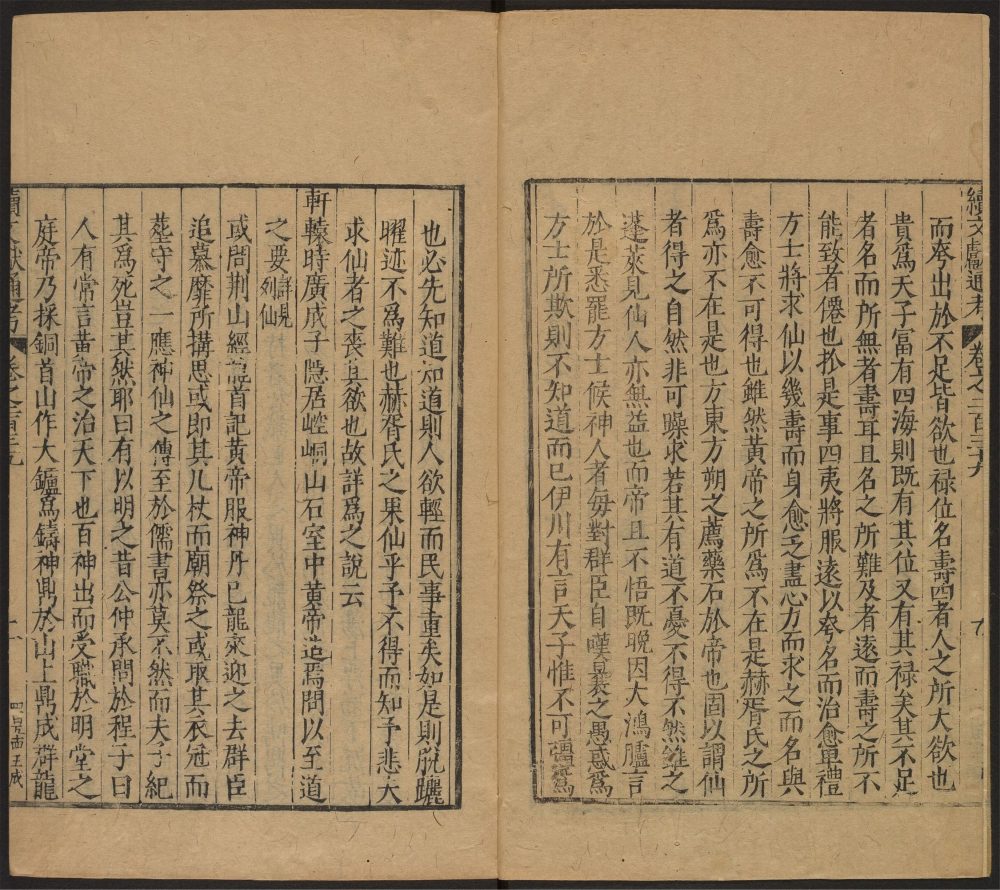 續文獻通考 卷之二百三十九
而夸出於不足皆欲也禄位名壽四者人之所大欲也
貴爲天子富有四海則既有其位又有其禄矣其不足
者名而所無者壽耳且名之所難及者遠而壽之所不
能致者僊也於是事四夷將服遠以夸名而治愈單禮
方士將求仙以幾壽而身愈乏盡心方而求之而名與
壽愈不可得也雖然黃帝之所爲不在是赫胥氏之所
爲亦不在是也方東方朔之薦藥石於帝也固以謂仙
者得之自然非可躁求若其有道不憂不得不然雖之
蓬萊見仙人亦無益也而帝且不悟既晚因大鴻臚言
於是悉罷方士候神人者每對群臣自嘆曩之愚惑爲
方士所欺則不知道而已伊川有言天子惟不可彊爲
也必先知道知道則人欲輕而民事重矣如是則脫躧
曜迹不爲難也赫胥氏之果仙乎予不得而知予悲大
求仙者之喪其欲也故詳爲之說云
軒轅時廣成子隱居崆峒山石室中黃帝造焉問以至道
之要詳見列仙
或問荆山經龍首記黃帝服神丹巳龍來迎之去群臣
追慕靡所搆思或即其几杖而廟祭之或取其衣冠而
塟守之一應神仙之傳至於儒書亦莫不然而夫子紀
其爲死豈其然耶曰有以明之昔公仲承問於程子曰
人有常言黃帝之治天下也百神出而受職於明堂之
庭帝乃採銅首山作大鑪焉鑄神鼎於山上鼎成群龍